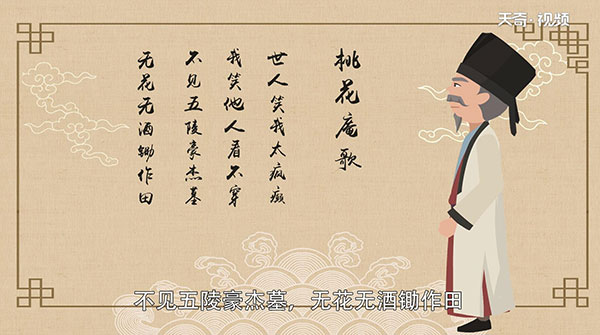 天奇·视频
桃花庵歌
世人笑我太疯癫
我笑他人看不穿
不见五陵豪杰墓
无花无酒锄作田
不见五陵豪杰墓，无花无酒锄作田